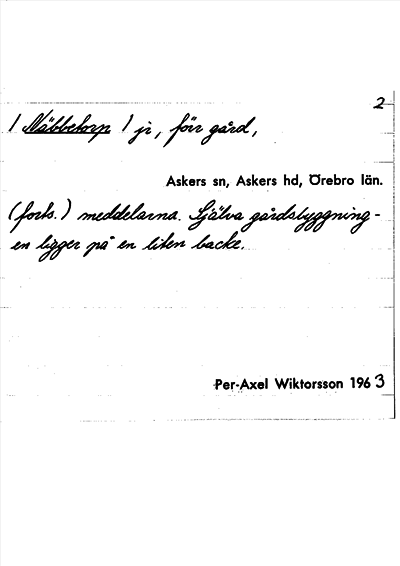 2
/ Näbbetorp / jr, förr gård,
Askers sn, Askers hd, Örebro län.
(forts.) meddelarna. Själva gårdsbyggning-
en ligger på en liten backe.
Per-Axel Wiktorsson 1963